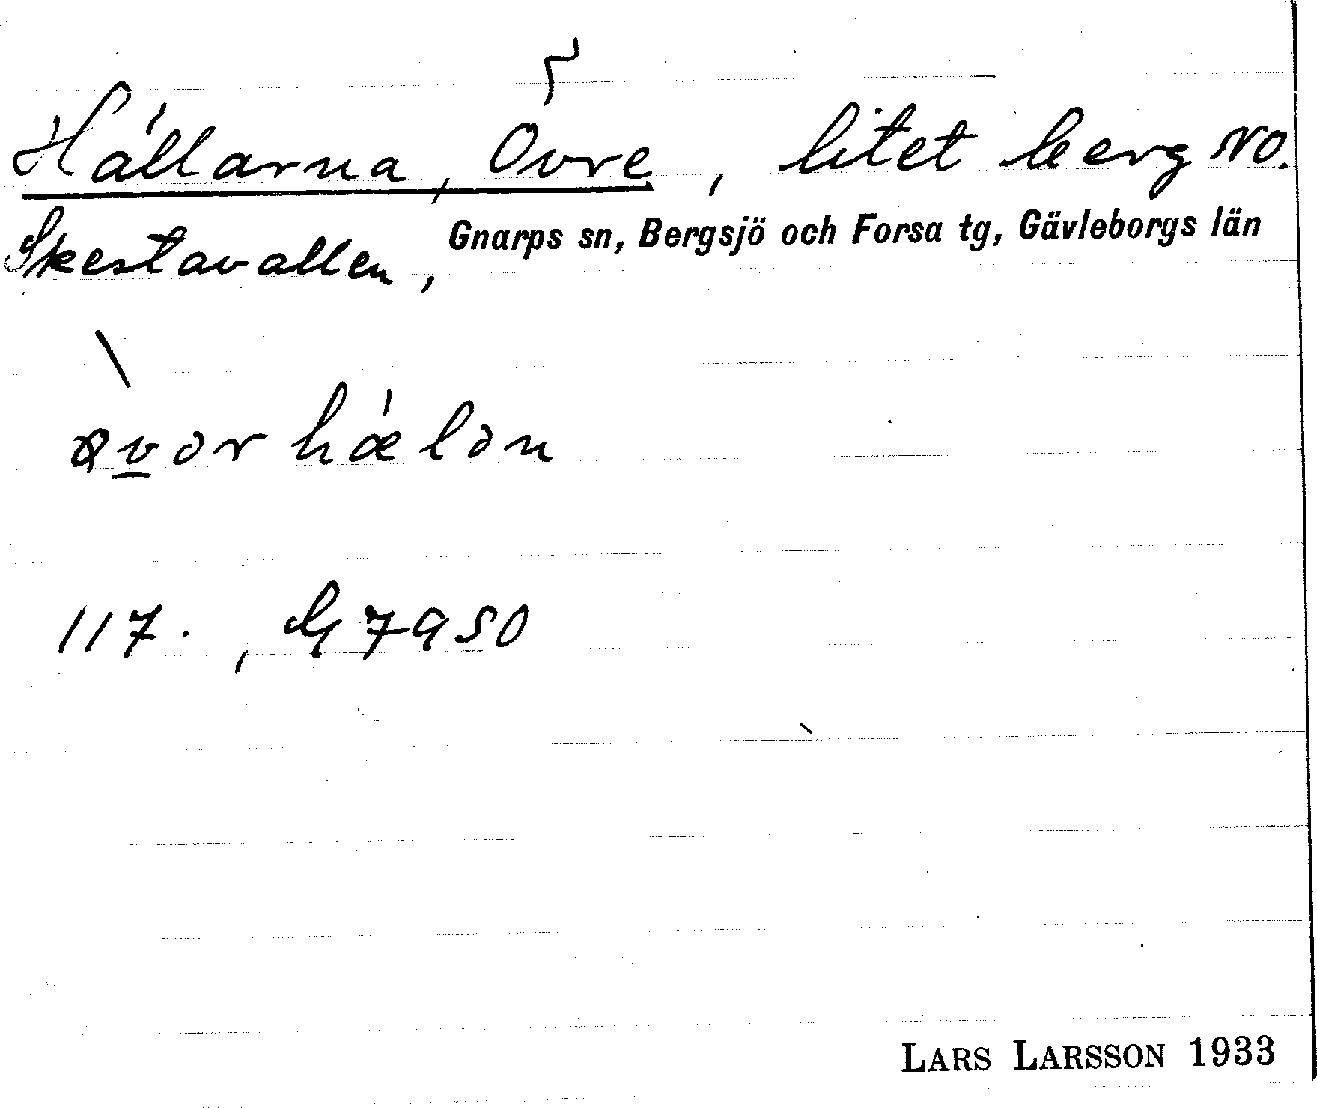 Hällarna, Övre, litet berg NO.
Skestavallen, Gnarps sn, Bergsjö och Forsa tg, Gävleborgs län
117.,
LARS LARSSON 1933